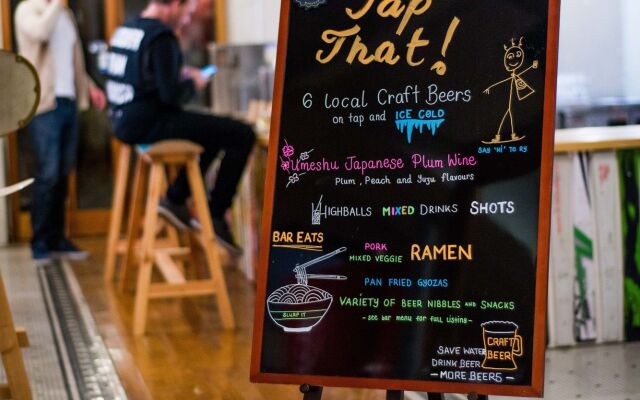 Tap
That!
6 local Craft Beers
on tap and ICE COLD
SAY "HI" TO RY
Umeshu Japanese Plum Wine
Plum, Peach and Yuzu flavours
HIGHBALLS MIXED DRINKS SHOTS
BAR EATS
PORK
MIXED VEGGIE RAMEN
PAN FRIED GYOZAS
SLURP IT
VARIETY OF BEER NIBBLES AND SNACKS
- SEE BAR MENU FOR FULL LISTING -
CRAFT
BEER
SAVE WATER
DRINK BEER
- MORE BEERS -